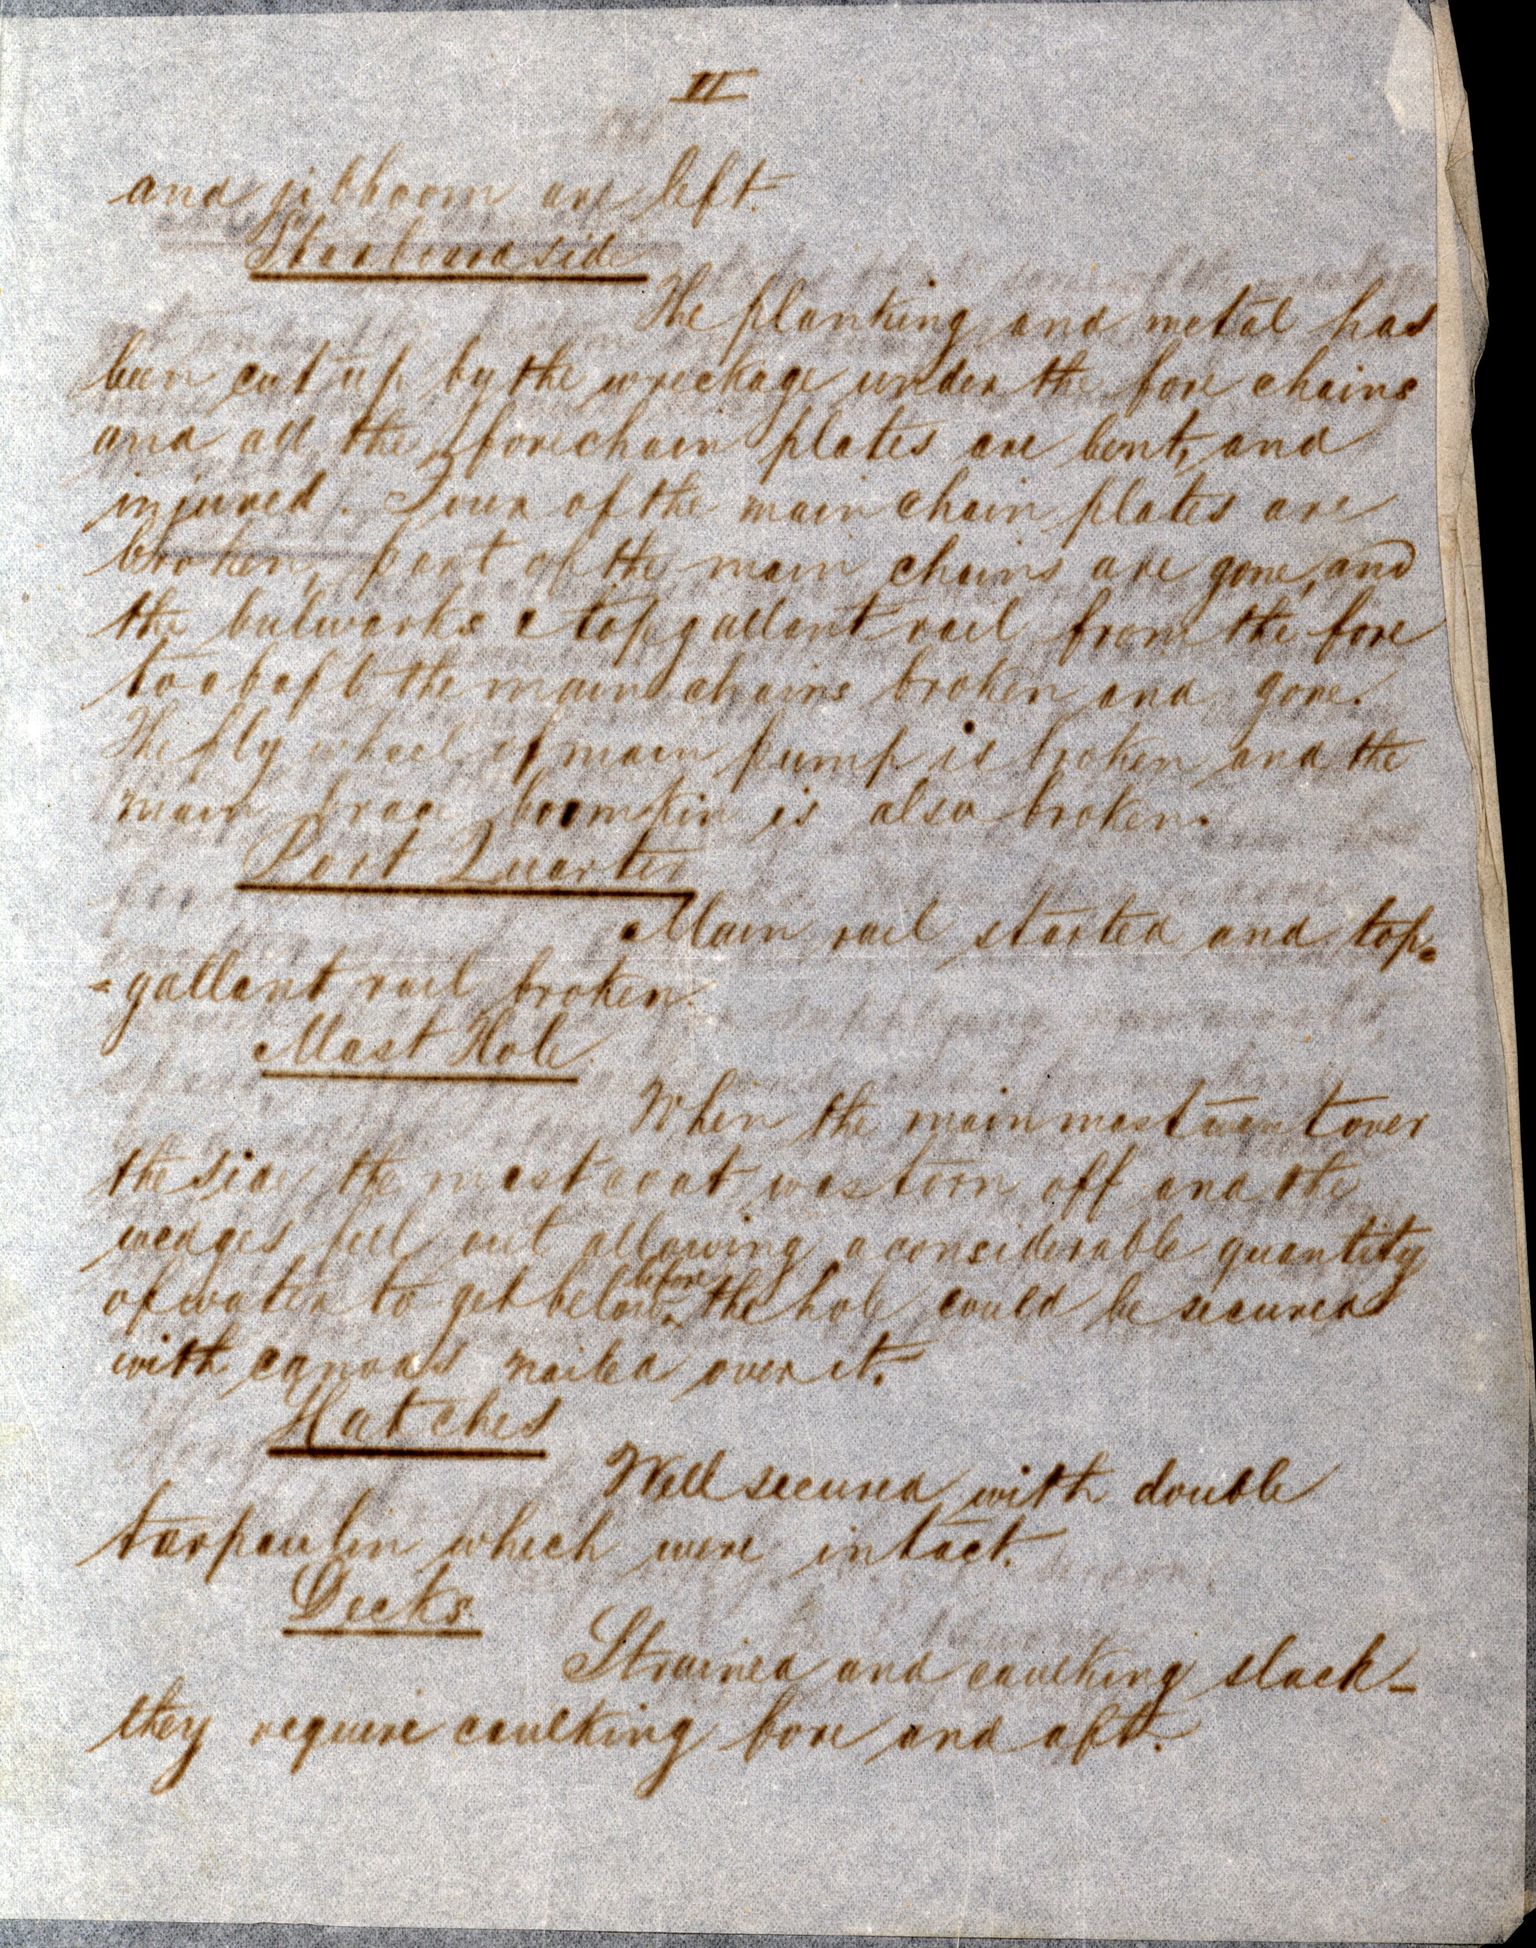 II
and jibboom are left.
Starboard side
The planking and metal has
been cut up by the wreckage under the fore chains
and all the forechain plates are bent, and
injured. Four of the main chain plates are
broken, part of the main chains are gone, and
the bulwarks & topgallant rail from the fore
to abaft the main chains broken and gone.
The fly wheel of main pump is broken and the
main brace boomkin is also broken.
Port Quarter
Main rail started and top-
-gallant rail broken.
Mast Hole
When the mainmast went over
the side the mast coat was torn off and the
wedges fell out allowing a considerable quantity
before
of water to get below the hole could be secured
with canvas nailed over it.
Hatches
Well secured with double
tarpaulin which were intact.
Decks.
Strained and caulking slack_
they require caulking fore and aft.